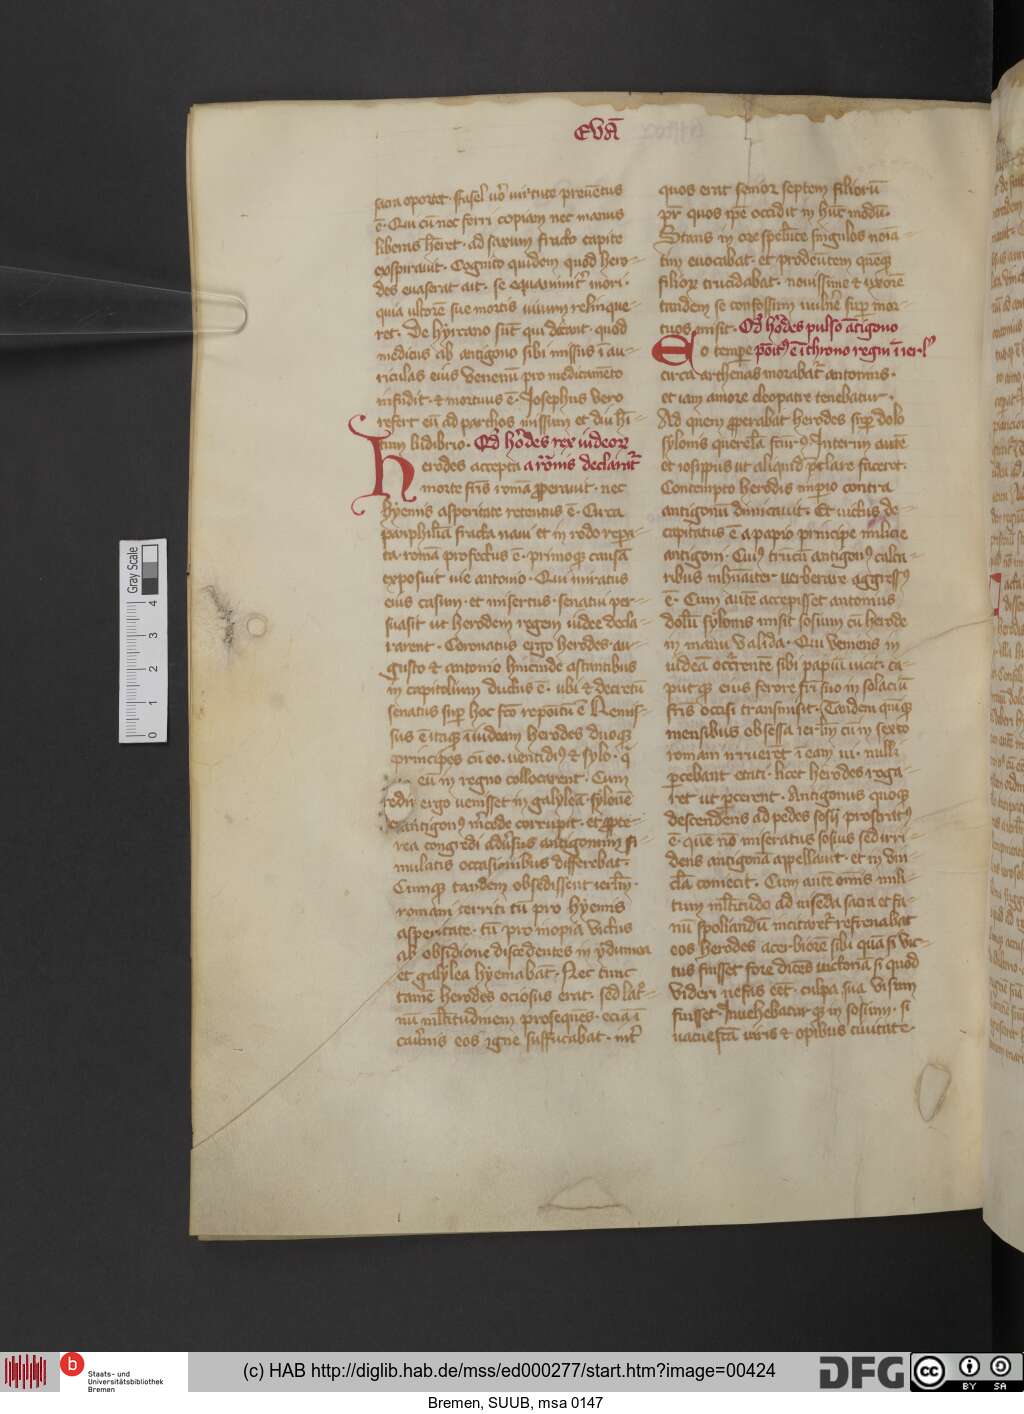 EVĀ
sacra oportet. ffasel vō virtute prevētus
ē. Qui cū nec ferri copiam nec manus
liberas hēret. ad saxum fracto capite
exspiravit. Cognito quidem quod hero-
des evaserat ait. se equanimit mori.
quia ultorē sue mortis vivum relinque-
ret. De hyrcano sūt qui dicāt. quod
medicus ab antigono sibi missus ī au-
riculas eius venenū pro medicamēto
infūdit. et mortuus ē. Josephus vero
refert eū ad parthos missum et diu hī-
tum ludibrio. Qd hōdes rex iudeor
Herodes accepta a rōnis declarat
morte fris romā pperavit. nec
hyemis asperitate retentus ē. Circa
pamphiliā fracta navi et in rodo repa-
ta. romā profectus ē. primoq causā
exposuit sue antonio. Qui miratus
eius casum. et misertus. senatui per-
suasit ut herodem regem iudee decla-
rarent. Coronatus ergo herodes. au-
gusto et antonio hincinde astantibus
in capitolium ductus ē. ubi et decretū
senatus sup hoc fco repoitū ē Remis-
sus ē itaq ī iudeam herodes duoq
principes cū eo. ventidi et sylo. q
eū in regno collocarent. Cum
redii ergo venisset in galyleā. sylonē
antigon mcede corrupit. et ppte-
rea congredi adusus antigonum si-
mulatis occasionibus differebat.
Cumq tandem obsedissent ierlm.
romani territi tū pro hyemis
asperitate. tū pro inopia victus
ab obsidione discedentes in ydumea
et galylea hyemabāt. Nec tunc
tamē herodes ociosus erat. sed lat-
nū mltitudinem prosequēs. ecia ī
cavnis eos igne suffocabat. int
quos erat senior septem filiorū
pr quos ipe occidit in hūc modū.
Stans in ore spelūce singulos noia-
tim evocabat. et prodeūtem quēq
filiorum trucidabat. novissime et uxorē
tandem se confossum vulnē sup mor-
tuos misit. Qd hōdes pulso ātigono
Eo tempe poit ē ī throno regni ī ierl
circa athenas morabat antonius.
et iam amore cleopatre tenebatur.
Ad quem pperabat herodes sup dolo
sylonis querelā ftur. Interim autē
et iosippus ut aliquid pclare faceret.
Contempto herodis imperio contra
antigonū dimicavit. Et victus de-
capitatus ē a papio principe milicie
antigoni. Cui trūcū antigon calca-
ribus inhumaiter verberare aggress
ē. Cum autē accepisset antonius
dolū sylonis misit sosium cū herode
in manu valida. Qui veniens in
iudeā occrente sibi papiū vicit. ca-
putq eius ferore fri suo in solaciū
fris occisi transmisit. Tandem quiq
mensibus obsessa ierlm cū in sexto
romani irrueret ī eam vi. nulli
pcebant etati. licet herodes roga-
ret ut pcerent. Antigonus quoq
descendens ad pedes sosii prostrat
ē. quē nō miseratus sosius sed irri-
dens antigonā appellavit. et in vin-
cla coniecit. Cum autē omīs mili-
tum mltitudo ad viseda sacra et fa-
nū spoliandū incitaret refrenabat
eos herodes acerbiorē sibi quā si vic-
tus fuisset fore dicēs victoriā si quod
videri nefas eēt. culpa sua visum
fuisset. Invehebaturq in sosium. si
vacuefcā viris et opibus civitate.
Gray Scale
0 1 2 3 4
b
Staats- und
Universitätsbibliothek
Bremen
(c) HAB http://diglib.hab.de/mss/ed000277/start.htm?image=00424
DFG
cc BY SA
Bremen, SUUB, msa 0147